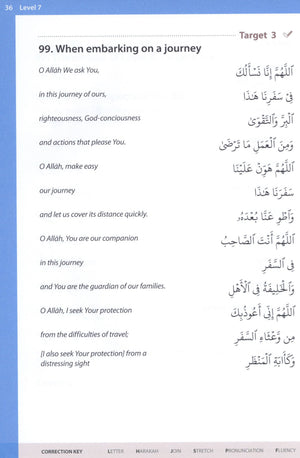 36 Level 7
Target 3
99. When embarking on a journey
O Allāh We ask You, اَللّٰهُمَّ إِنَّا نَسْأَلُكَ
in this journey of ours, فِيْ سَفَرِنَا هٰذَا
righteousness, God-consciousness اَلْبِرَّ وَالتَّقْوَىٰ
and actions that please You. وَمِنَ الْعَمَلِ مَا تَرْضَىٰ
O Allāh, make easy اَللّٰهُمَّ هَوِّنْ عَلَيْنَا
our journey سَفَرَنَا هٰذَا
and let us cover its distance quickly. وَاطْوِ عَنَّا بُعْدَهُ
O Allāh, You are our companion اَللّٰهُمَّ أَنْتَ الصَّاحِبُ
in this journey فِي السَّفَرِ
and You are the guardian of our families. وَالْخَلِيفَةُ فِي الْأَهْلِ
O Allāh, I seek Your protection اَللّٰهُمَّ إِنِّي أَعُوذُبِكَ
from the difficulties of travel; مِنْ وَعْثَاءِ السَّفَرِ
[I also seek Your protection] from a وَكَآبَةِ الْمَنْظَرِ
distressing sight
CORRECTION KEY LETTER HARAKAH JOIN STRETCH PRONUNCIATION FLUENCY